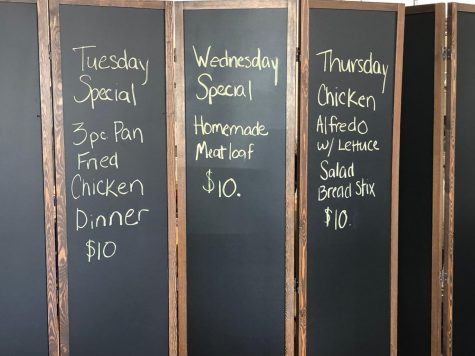 Tuesday
Special
3pc Pan
Fried
Chicken
Dinner
$10
Wednesday
Special
Homemade
Meatloaf
$10.
Thursday
Chicken
Alfredo
w/ Lettuce
Salad
Bread Stix
$10.